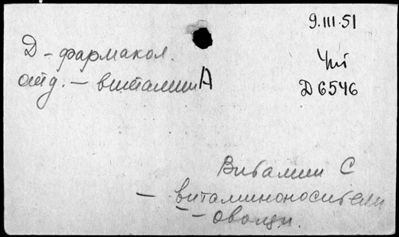 9.III.51
Д - фармакол.
отд. - витамин А
Чт
D 6546
Витамин С
- витаминоносители
- овощи.